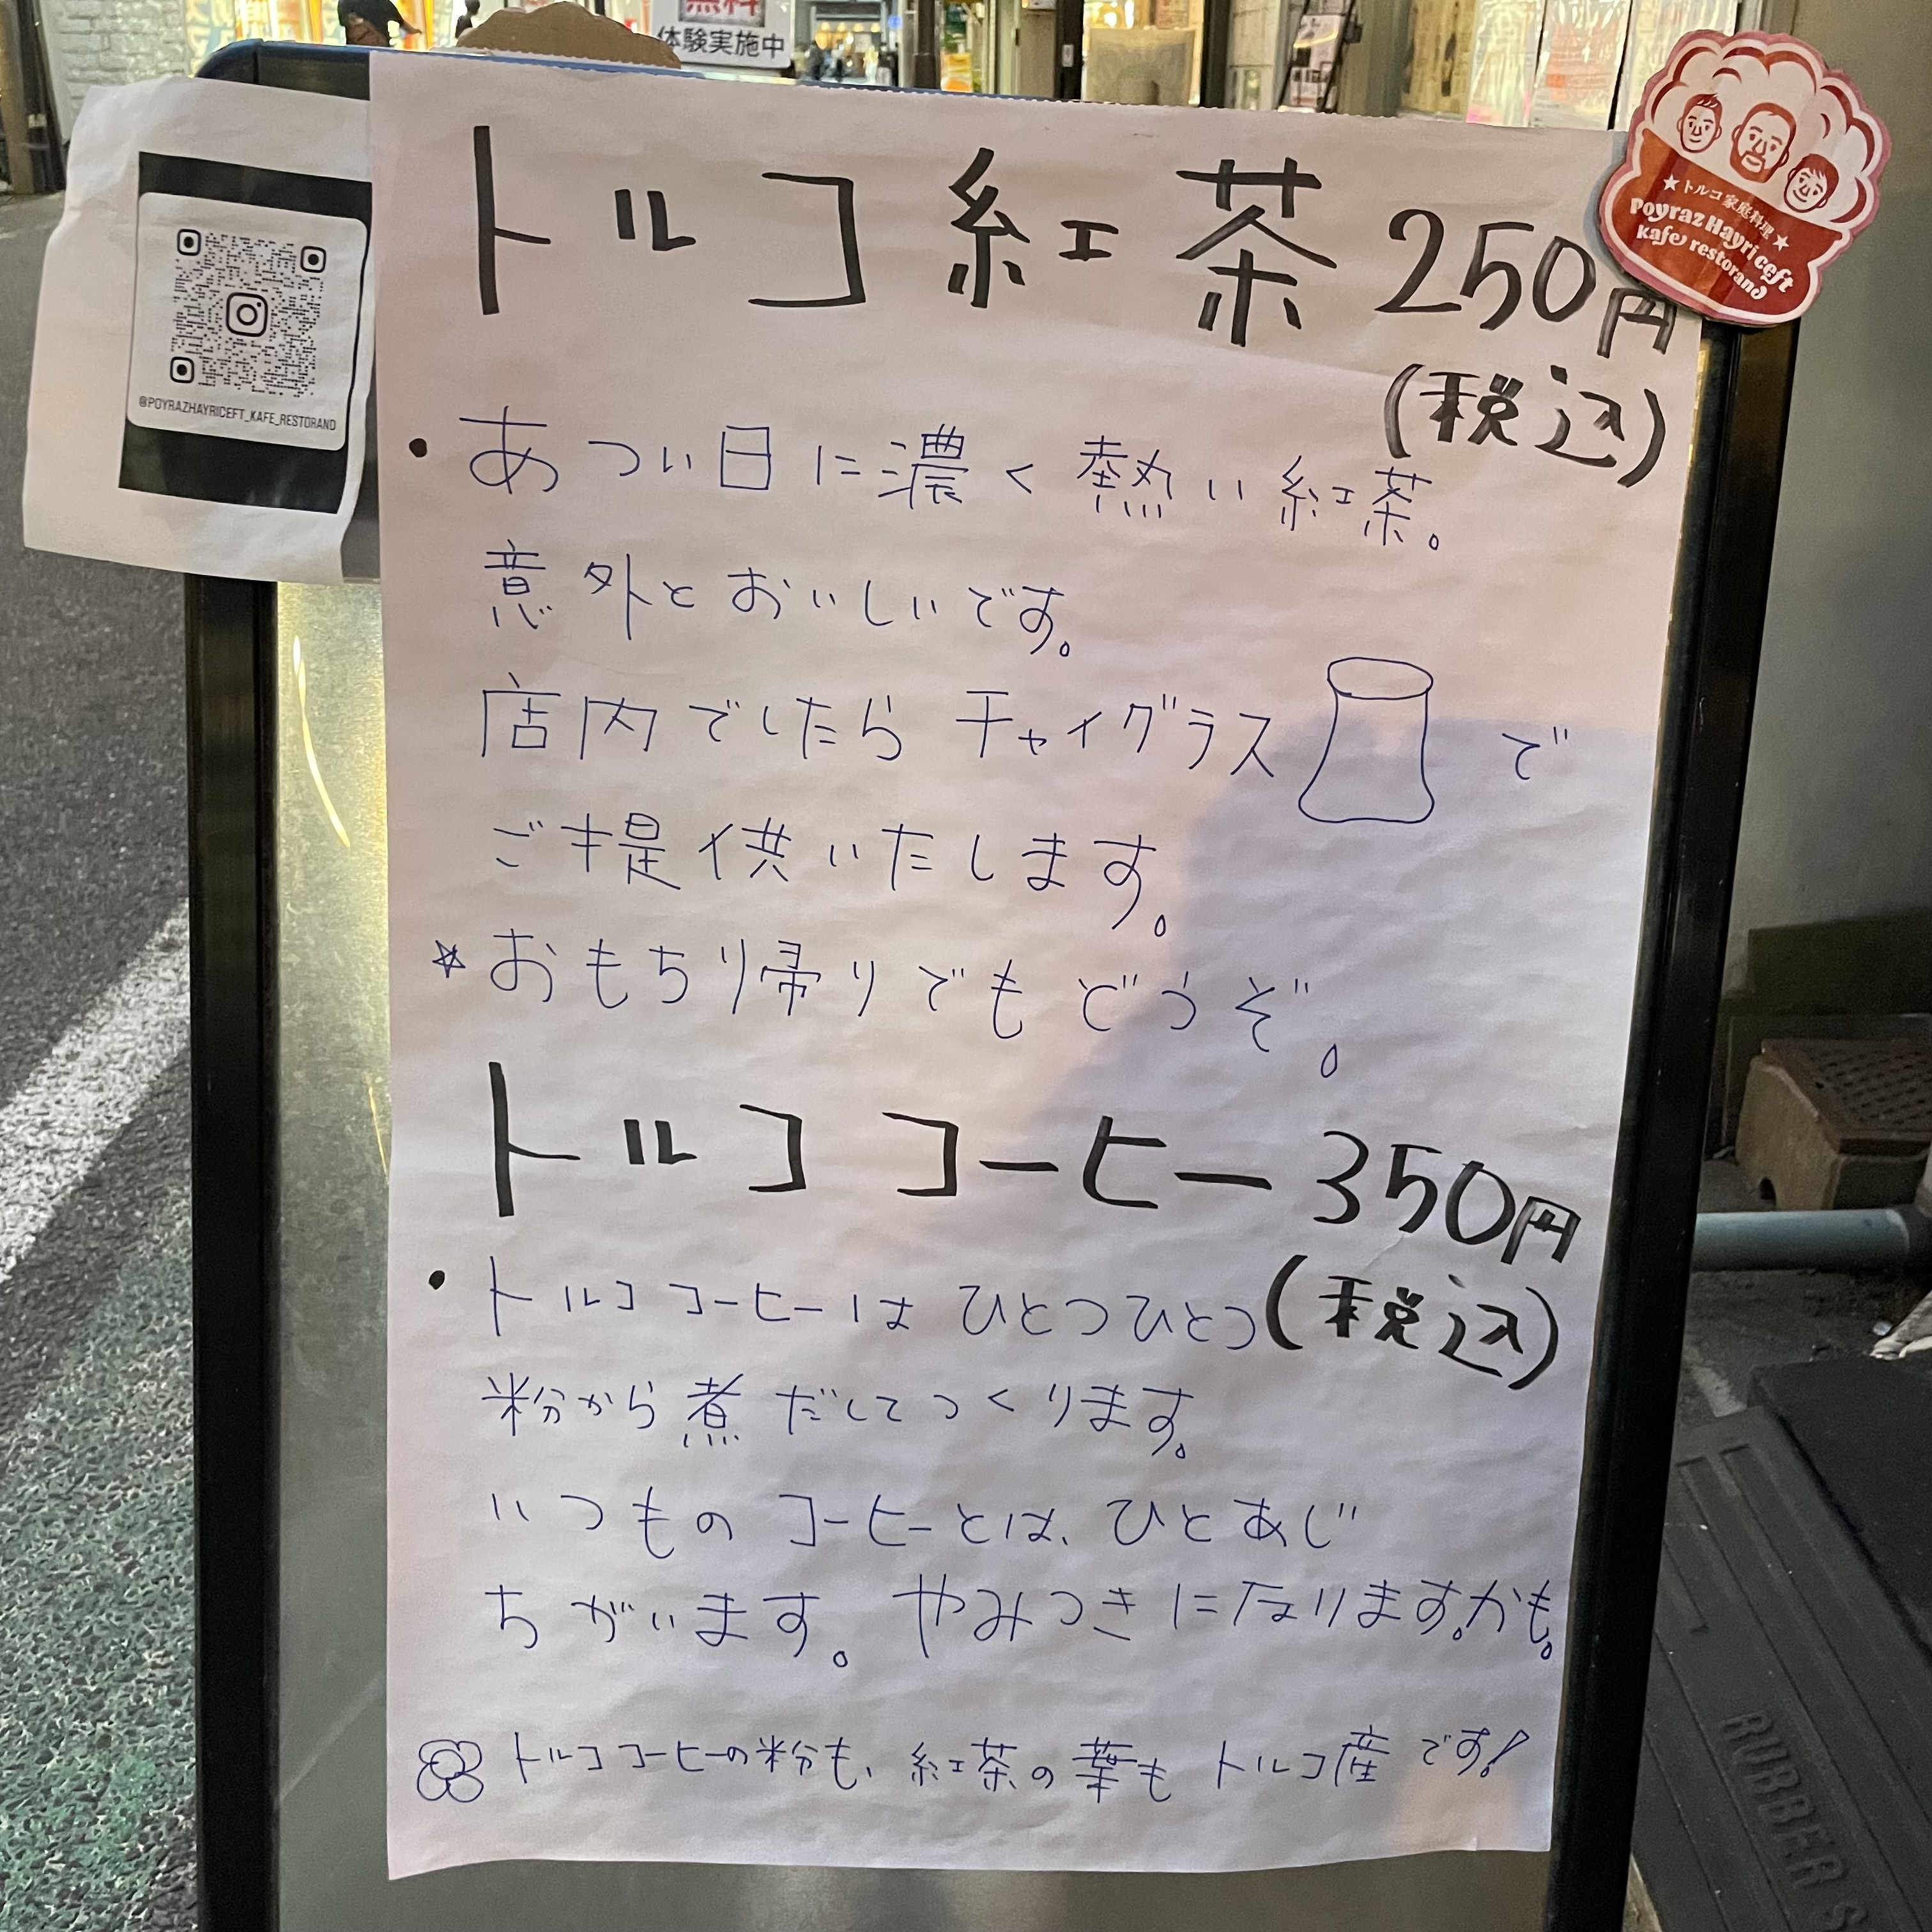 無料
体験実施中
トルコ紅茶 250円
(税込)
・あつい日に濃く熱い紅茶。
意外とおいしいです。
店内でしたらチャイグラス で
ご提供いたします。
☆おもち帰りでもどうぞ。
トルココーヒー 350円
(税込)
・トルココーヒーは ひとつひとつ
粉から煮だしてつくります。
いつものコーヒーとは、ひとあじ
ちがいます。やみつきになります。かも。
トルココーヒーの粉も、紅茶の葉もトルコ産です!
@POYRAZHAYRICEFT_KAFE_RESTORAND
★トルコ家庭料理★
Poyraz Hayri ceft
Kafe restorand
RUBBER S